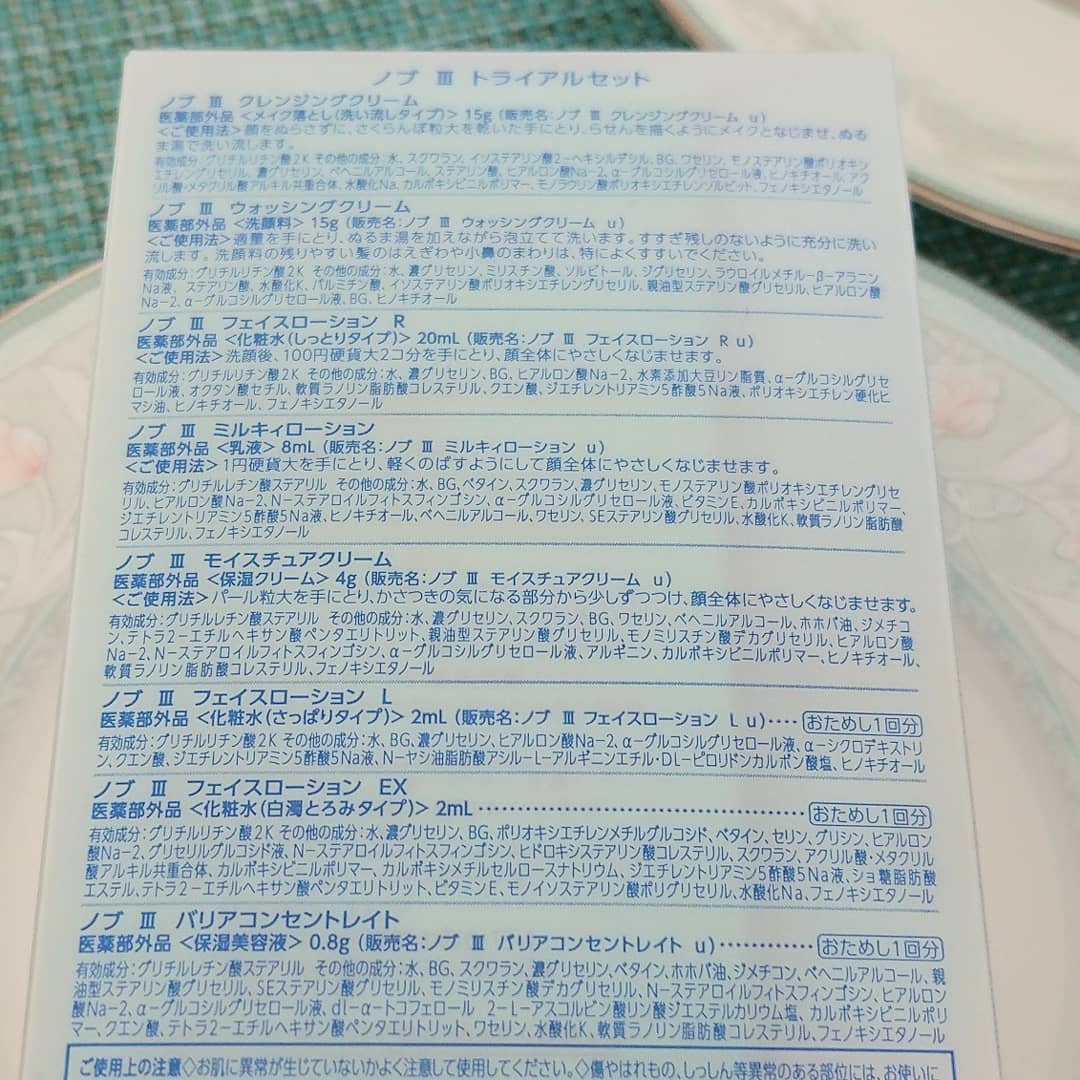 ノブ Ⅲ トライアルセット
ノブ Ⅲ クレンジングクリーム
医薬部外品 <メイク落とし(洗い流しタイプ)> 15g (販売名:ノブ Ⅲ クレンジングクリーム u)
<ご使用法>顔をぬらさずに、さくらんぼ粒大を乾いた手にとり、らせんを描くようにメイクとなじませ、ぬる
ま湯で洗い流します。
有効成分:グリチルリチン酸2K その他の成分:水、スクワラン、イソステアリン酸2-ヘキシルデシル、BG、ワセリン、モノステアリン酸ポリオキシ
エチレングリセリル、濃グリセリン、ベヘニルアルコール、ステアリン酸、ヒアルロン酸Na-2、α-グルコシルグリセロール液、ヒノキチオール、アク
リル酸・メタクリル酸アルキル共重合体、水酸化Na、カルボキシビニルポリマー、モノラウリン酸ポリオキシエチレンソルビット、フェノキシエタノール
ノブ Ⅲ ウォッシングクリーム
医薬部外品 <洗顔料> 15g (販売名:ノブ Ⅲ ウォッシングクリーム u)
<ご使用法>適量を手にとり、ぬるま湯を加えながら泡立てて洗います。すすぎ残しのないように充分に洗い
流します。洗顔料の残りやすい髪のはえぎわや小鼻のまわりは、特によくすすいでください。
有効成分:グリチルリチン酸2K その他の成分:水、濃グリセリン、ミリスチン酸、ソルビトール、ジグリセリン、ラウロイルメチル-β-アラニン
Na液、ステアリン酸、水酸化K、パルミチン酸、イソステアリン酸ポリオキシエチレングリセリル、親油型ステアリン酸グリセリル、ヒアルロン酸
Na-2、α-グルコシルグリセロール液、BG、ヒノキチオール
ノブ Ⅲ フェイスローション R
医薬部外品 <化粧水(しっとりタイプ)> 20mL (販売名:ノブ Ⅲ フェイスローション R u)
<ご使用法>洗顔後、100円硬貨大2コ分を手にとり、顔全体にやさしくなじませます。
有効成分:グリチルリチン酸2K その他の成分:水、濃グリセリン、BG、ヒアルロン酸Na-2、水素添加大豆リン脂質、α-グルコシルグリセ
ロール液、オクタン酸セチル、軟質ラノリン脂肪酸コレステリル、クエン酸、ジエチレントリアミン5酢酸5Na液、ポリオキシエチレン硬化ヒ
マシ油、ヒノキチオール、フェノキシエタノール
ノブ Ⅲ ミルキィローション
医薬部外品 <乳液> 8mL (販売名:ノブ Ⅲ ミルキィローション u)
<ご使用法>1円硬貨大を手にとり、軽くのばすようにして顔全体にやさしくなじませます。
有効成分:グリチルレチン酸ステアリル その他の成分:水、BG、ベタイン、スクワラン、濃グリセリン、モノステアリン酸ポリオキシエチレングリセ
リル、ヒアルロン酸Na-2、N-ステアロイルフィトスフィンゴシン、α-グルコシルグリセロール液、ビタミンE、カルボキシビニルポリマー、
ジエチレントリアミン5酢酸5Na液、ヒノキチオール、ベヘニルアルコール、ワセリン、SEステアリン酸グリセリル、水酸化K、軟質ラノリン脂肪酸
コレステリル、フェノキシエタノール
ノブ Ⅲ モイスチュアクリーム
医薬部外品 <保湿クリーム> 4g (販売名:ノブ Ⅲ モイスチュアクリーム u)
<ご使用法>パール粒大を手にとり、かさつきの気になる部分から少しずつつけ、顔全体にやさしくなじませます。
有効成分:グリチルレチン酸ステアリル その他の成分:水、濃グリセリン、スクワラン、BG、ワセリン、ベヘニルアルコール、ホホバ油、ジメチコ
ン、テトラ2-エチルヘキサン酸ペンタエリトリット、親油型ステアリン酸グリセリル、モノミリスチン酸デカグリセリル、ヒアルロン酸
Na-2、N-ステアロイルフィトスフィンゴシン、α-グルコシルグリセロール液、アルギニン、カルボキシビニルポリマー、ヒノキチオール、
軟質ラノリン脂肪酸コレステリル、フェノキシエタノール
ノブ Ⅲ フェイスローション L
医薬部外品 <化粧水(さっぱりタイプ)> 2mL (販売名:ノブ Ⅲ フェイスローション L u)‥‥ おためし1回分
有効成分:グリチルリチン酸2K その他の成分:水、BG、濃グリセリン、ヒアルロン酸Na-2、α-グルコシルグリセロール液、α-シクロデキストリ
ン、クエン酸、ジエチレントリアミン5酢酸5Na液、N-ヤシ油脂肪酸アシル-L-アルギニンエチル・DL-ピロリドンカルボン酸塩、ヒノキチオール
ノブ Ⅲ フェイスローション EX
医薬部外品 <化粧水(白濁とろみタイプ)> 2mL‥‥‥‥‥‥‥‥‥‥‥‥‥‥‥‥ おためし1回分
有効成分:グリチルリチン酸2K その他の成分:水、濃グリセリン、BG、ポリオキシエチレンメチルグルコシド、ベタイン、セリン、グリシン、ヒアルロン
酸Na-2、グリセリルグルコシド液、N-ステアロイルフィトスフィンゴシン、ヒドロキシステアリン酸コレステリル、スクワラン、アクリル酸・メタクリル
酸アルキル共重合体、カルボキシビニルポリマー、カルボキシメチルセルロースナトリウム、ジエチレントリアミン5酢酸5Na液、ショ糖脂肪酸
エステル、テトラ2-エチルヘキサン酸ペンタエリトリット、ビタミンE、モノイソステアリン酸ポリグリセリル、水酸化Na、フェノキシエタノール
ノブ Ⅲ バリアコンセントレイト
医薬部外品 <保湿美容液> 0.8g (販売名:ノブ Ⅲ バリアコンセントレイト u)‥‥‥‥‥‥ おためし1回分
有効成分:グリチルレチン酸ステアリル その他の成分:水、BG、スクワラン、濃グリセリン、ベタイン、ホホバ油、ジメチコン、ベヘニルアルコール、親
油型ステアリン酸グリセリル、SEステアリン酸グリセリル、モノミリスチン酸デカグリセリル、N-ステアロイルフィトスフィンゴシン、ヒアルロン
酸Na-2、α-グルコシルグリセロール液、dl-α-トコフェロール 2-L-アスコルビン酸リン酸ジエステルカリウム塩、カルボキシビニルポリ
マー、クエン酸、テトラ2-エチルヘキサン酸ペンタエリトリット、ワセリン、水酸化K、軟質ラノリン脂肪酸コレステリル、フェノキシエタノール
ご使用上の注意◇お肌に異常が生じていないかよく注意して使用してください。◇傷やはれもの、しっしん等異常のある部位には、お使いに